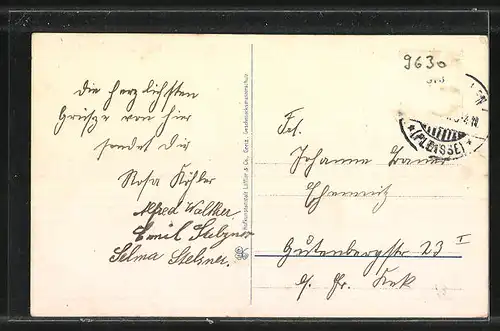 Die herzlichsten
Grüsse von hier
sendet Dir
Rosa Köhler
Alfred Walther
Emil Stelzner
Selma Stelzner.
9630
(PLEISSE)
Frl.
Johanne
Chemnitz
Gutenbergstr 23 I
b/ Fr.